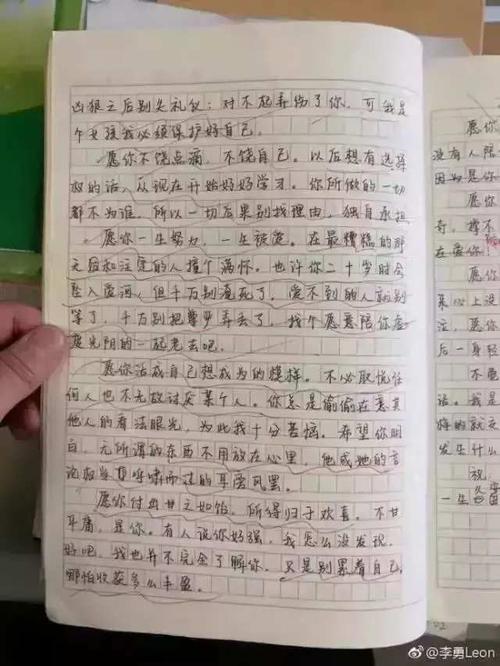 凶狠之后别失礼仪：对不起弄伤了你，可我是
个女孩我必须保护好自己。
愿你不饶点滴，不饶自己。以后想有选择
权的话，从现在开始好好学习。你所做的一切
都不为谁，所以一切后果别找理由，独自承担
愿你一生努力，一生被爱。在最糟糕的那
天后和注定的人撞个满怀。也许你二十岁时会
坠入爱河，但千万别淹死了，爱不到的人就别
等了，千万别把尊严弄丢了，找个愿意陪你虚
度光阴的一起老去吧。
愿你活成自己想成为的模样。不必取悦任
何人也不无故讨厌某个人。你总是偷偷在意其
他人的看法眼光，为此我十分苦恼。希望你明
白，无所谓的东西不用放在心里，他或她的言
论权当耳呼啸而过的耳旁风罢。
愿你付出甘之如饴，所得归于欢喜。不甘
平庸，是你。有人说你好强，我怎么没发现，
好吧，我也并不完全了解你，只是别累着自己，
哪怕收获多么丰盈。
愿你
没有人陪
因为是你
愿你
奇，撑不
在爱你！
愿你
某心上
注，愿你
后一身轻
不要
话。我是
悔的就
发生什么
祝
一生
@李勇Leon